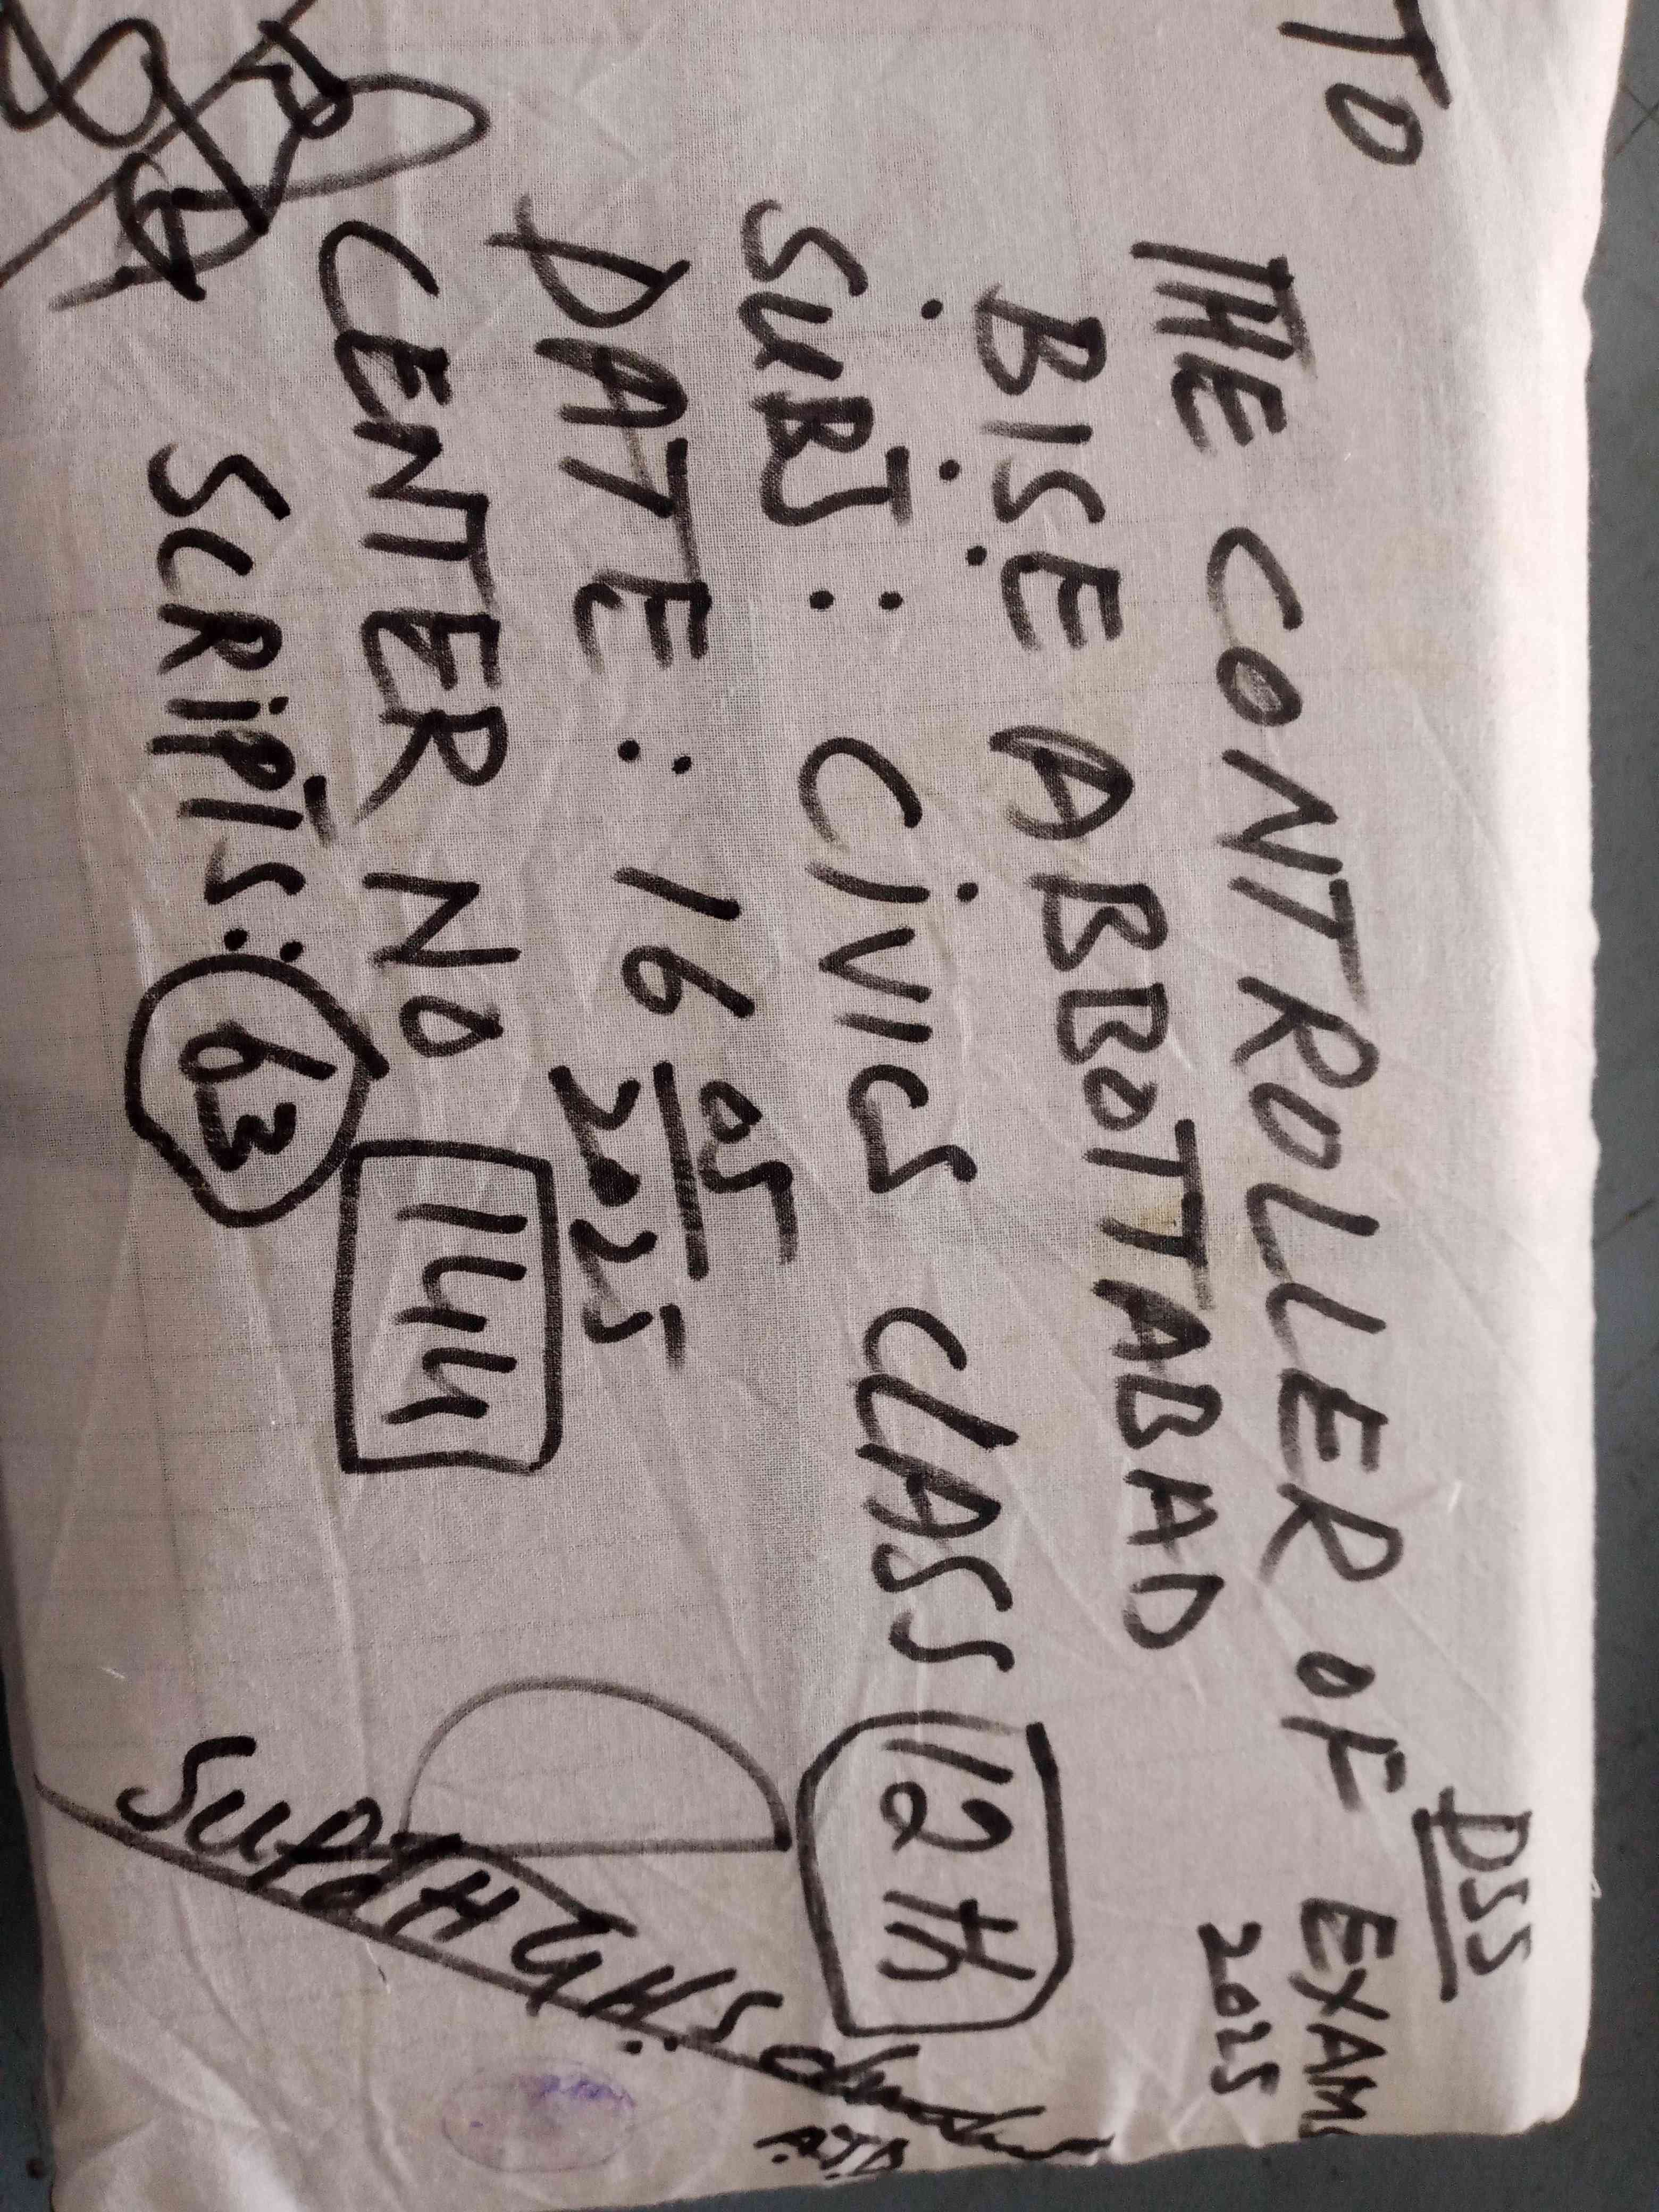 TO
DSS
THE CONTROLLER OF EXAM
2025
B.I.S.E ABBOTTABAD
SUBJ: CiVICS CLASS 12th
DATE: 16 05
2025
CENTER NO 1444
SCRIPTS: 63